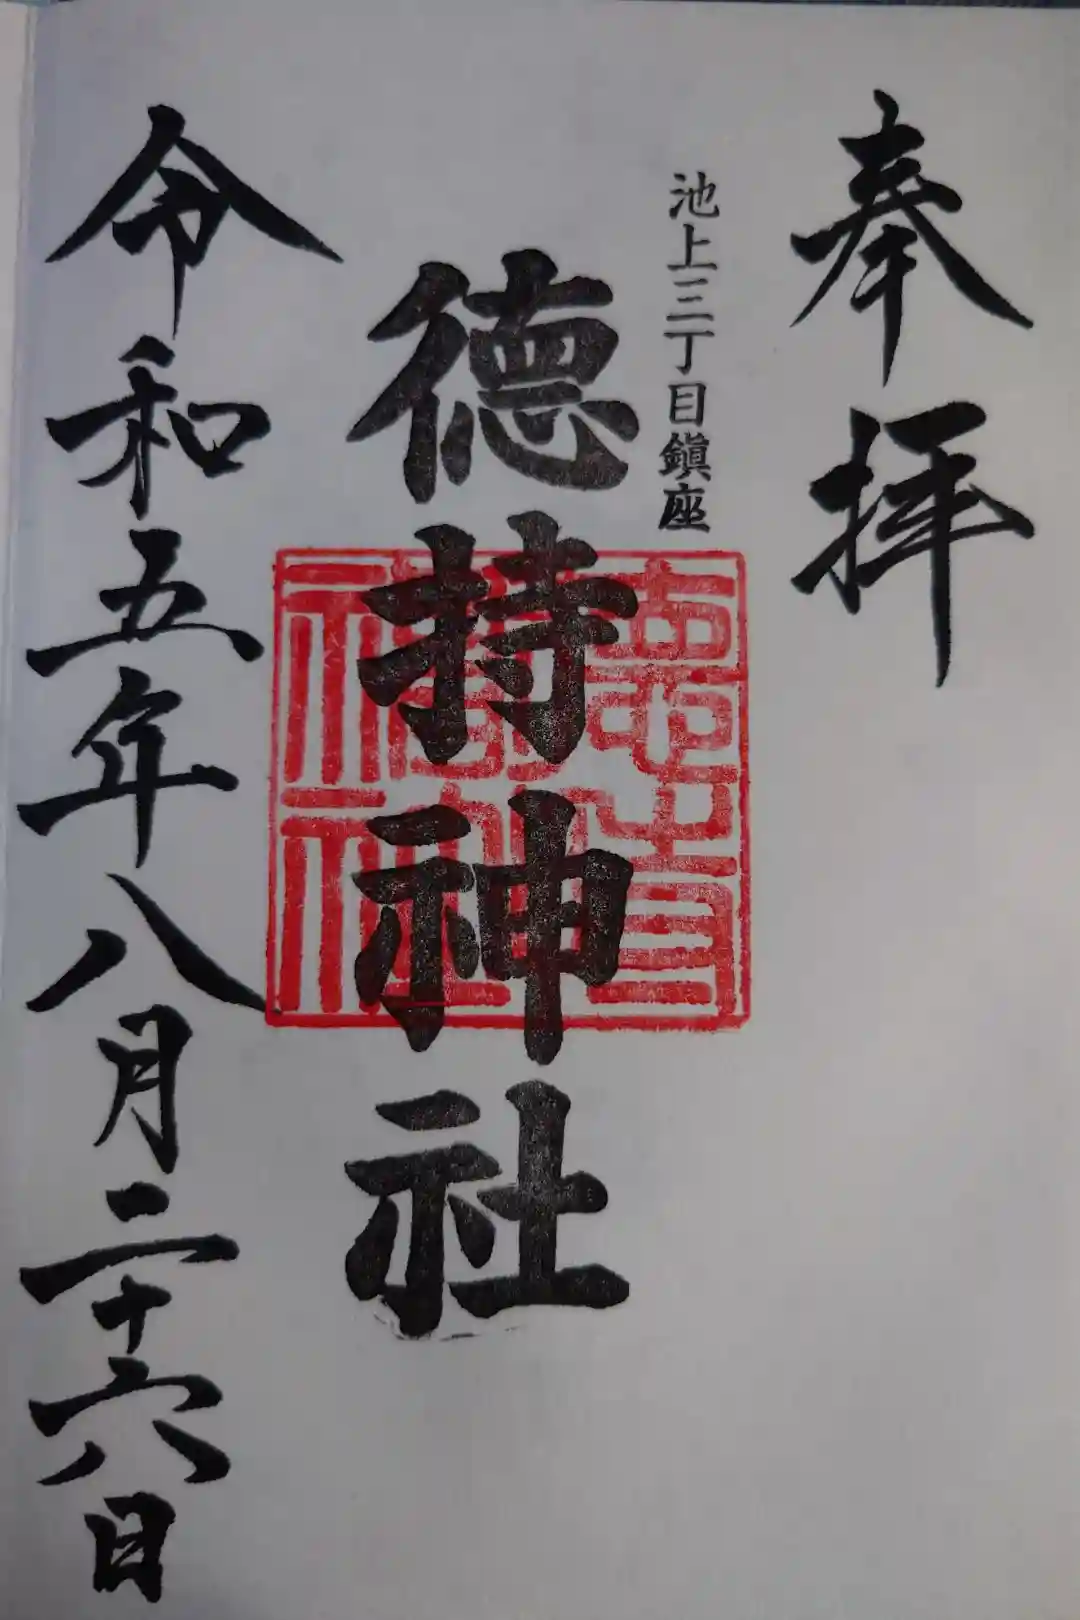 奉拝
池上三丁目鎭座
德持神社
令和五年八月二十六日